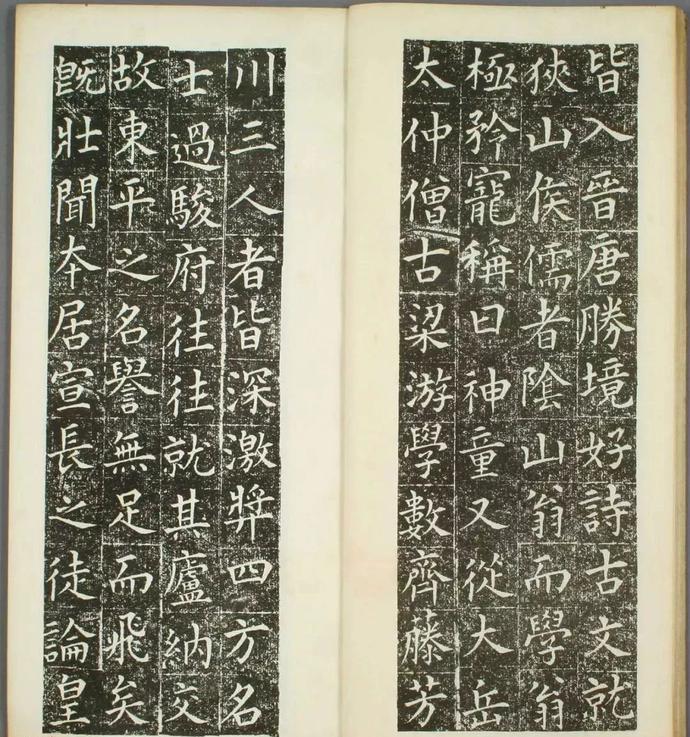 皆入晉唐勝境好詩古文就
狹山侯儒者陰山翁而學翁
極矜寵稱曰神童又從大岳
太仲僧古梁游學數齊藤芳
川三人者皆深激奬四方名
士過駿府往往就其廬納交
故東平之名譽無足而飛矣
旣壯聞本居宣長之徒論皇